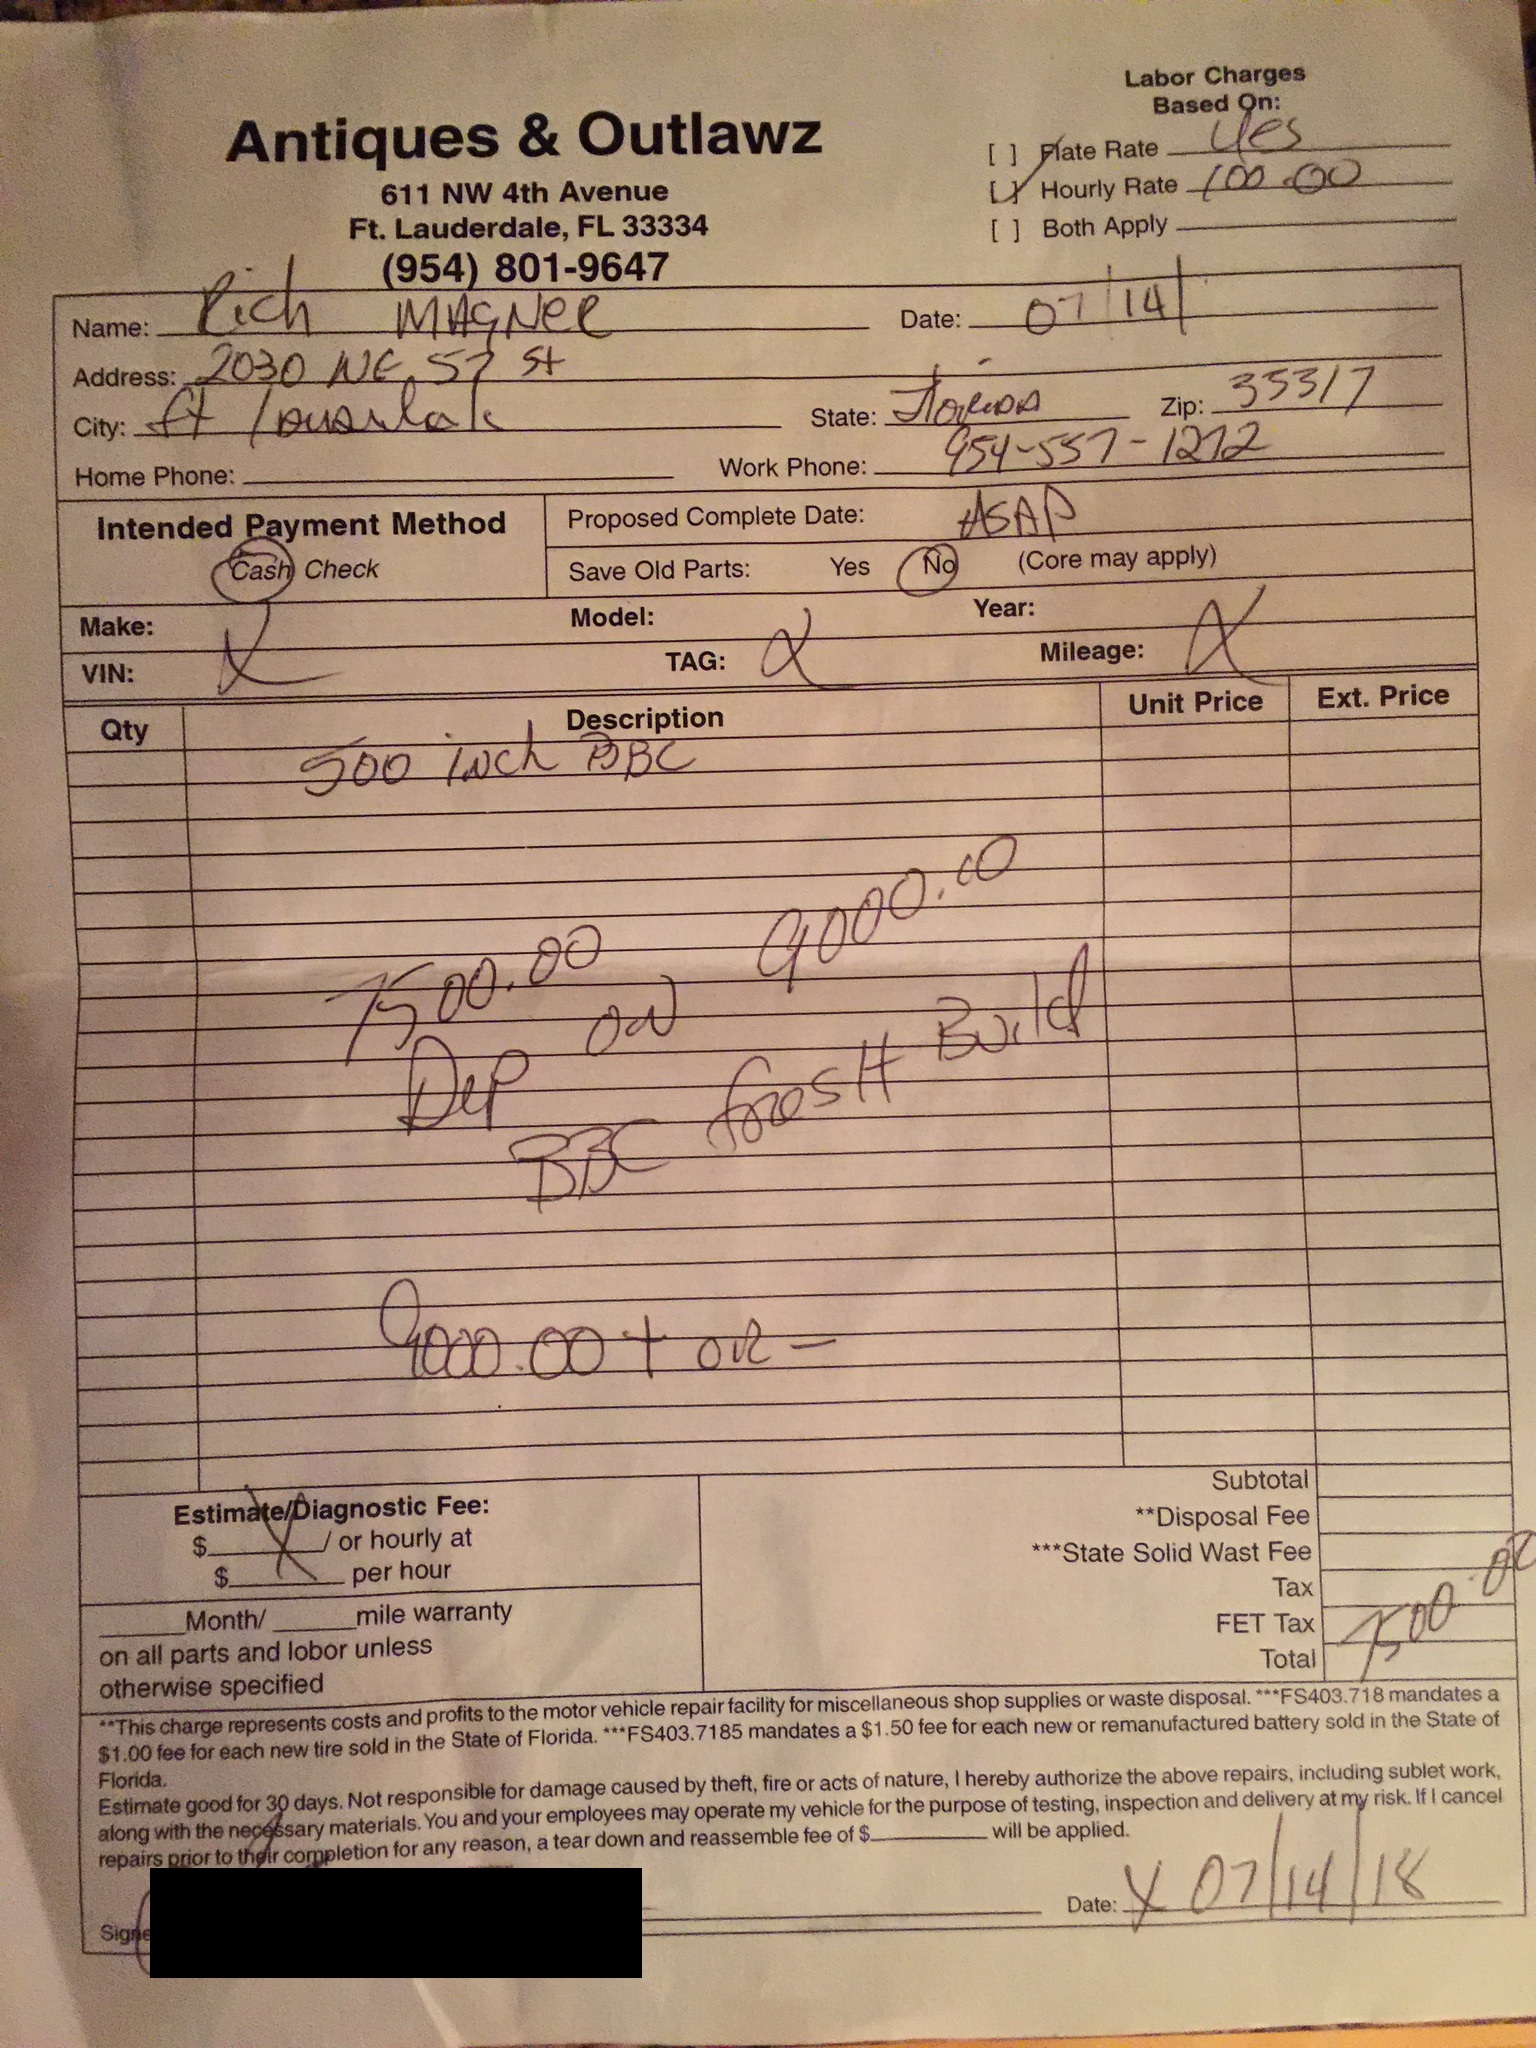 Labor Charges
Based On:
Antiques & Outlawz
611 NW 4th Avenue
Ft. Lauderdale, FL 33334
(954) 801-9647
[ ] Flate Rate Yes
[ ] Hourly Rate 100.00
[ ] Both Apply
Name: Rich MAGNER Date: 07/14/
Address: 2030 NE 57 St
City: ft State: Florida Zip: 33317
Home Phone: Work Phone: 954-557-1272
Intended Payment Method
Cash Check
Proposed Complete Date: ASAP
Save Old Parts: Yes No (Core may apply)
Make: Model: Year:
VIN: X TAG: X Mileage: X
Qty Description Unit Price Ext. Price
500 inch BBC
7500.00
Dep on 9000.00
BBC fresH Build
9000.00 + or -
Estimate/Diagnostic Fee:
$ X / or hourly at
$ per hour
Month/ mile warranty
on all parts and lobor unless
otherwise specified
Subtotal
**Disposal Fee
***State Solid Wast Fee
Tax
FET Tax
Total 7500.00
**This charge represents costs and profits to the motor vehicle repair facility for miscellaneous shop supplies or waste disposal. ***FS403.718 mandates a
$1.00 fee for each new tire sold in the State of Florida. ***FS403.7185 mandates a $1.50 fee for each new or remanufactured battery sold in the State of
Florida.
Estimate good for 30 days. Not responsible for damage caused by theft, fire or acts of nature, I hereby authorize the above repairs, including sublet work,
along with the necessary materials. You and your employees may operate my vehicle for the purpose of testing, inspection and delivery at my risk. If I cancel
repairs prior to their completion for any reason, a tear down and reassemble fee of $ will be applied.
Date: X 07/14/18